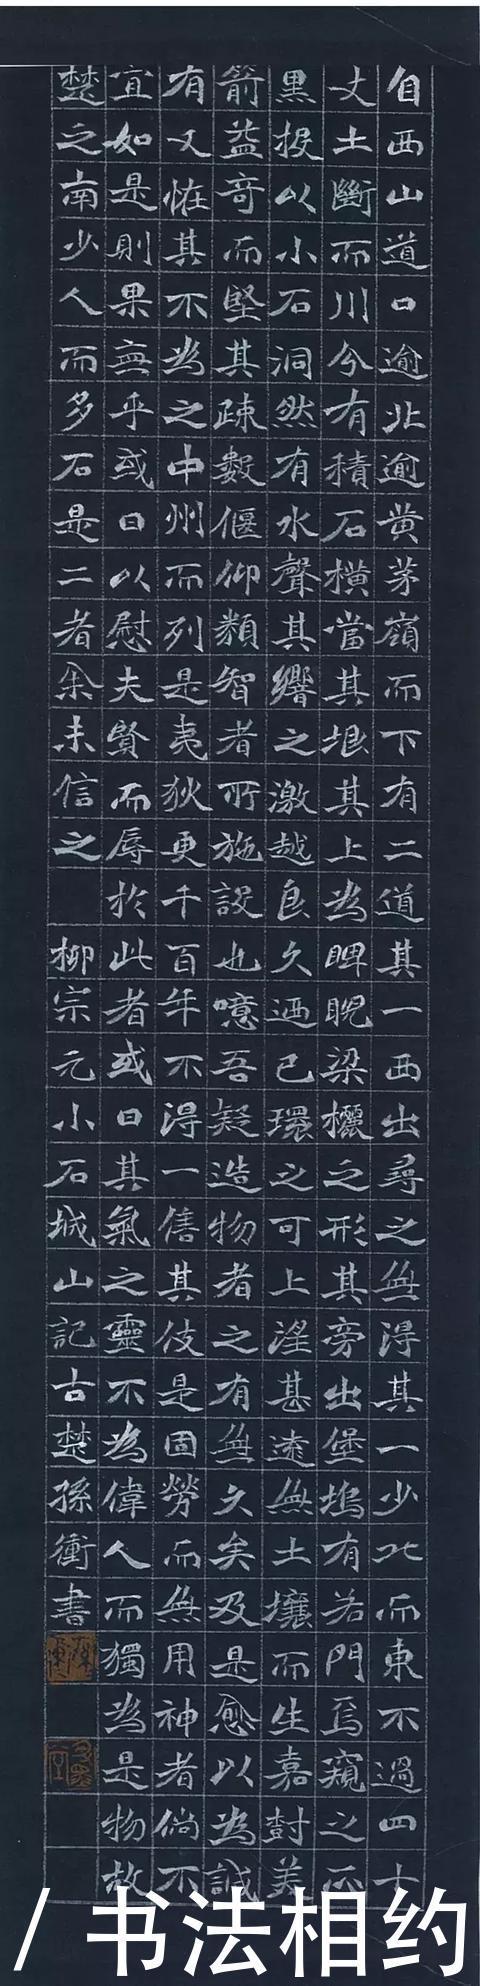 自西山道口逾北逾黄茅嶺而下有二道其一西出尋之無得其一少北而東不過四十
丈土斷而川分有積石横當其垠其上為睥睨梁欐之形其旁出堡塢有若門焉窺之正
黑投以小石洞然有水聲其響之激越良久迺已環之可上望甚遠無土壤而生嘉尌美
箭益奇而堅其疎數偃仰類智者所施設也噫吾疑造物者之有無久矣及是愈以為誠
有又恠其不為之中州而列是夷狄更千百年不得一售其伎是固勞而無用神者倘不
宜如是則果無乎或曰以慰夫賢而辱於此者或曰其氣之靈不為偉人而獨為是物故
楚之南少人而多石是二者余未信之 柳宗元小石城山記古楚孫衝書
/ 书法相约